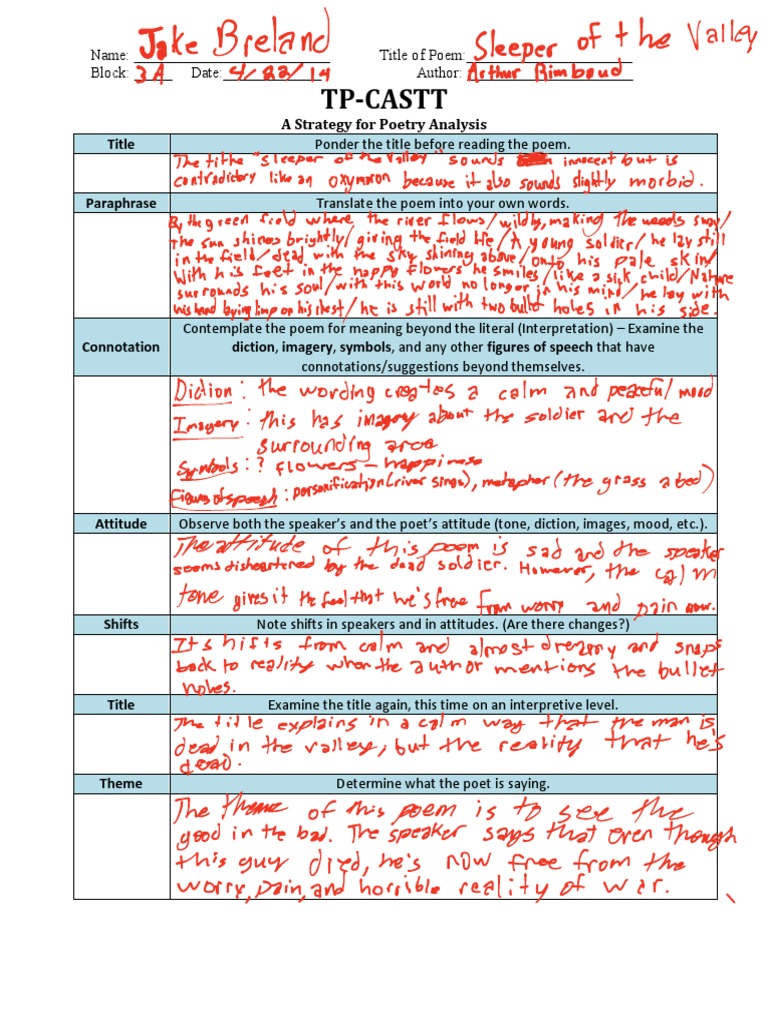 Name: Jake Breland Title of Poem: Sleeper of the Valley
Block: 3A Date: 4/22/14 Author: Arthur Rimboud
TP-CASTT
A Strategy for Poetry Analysis
Title Ponder the title before reading the poem.
The tithe "sleeper of the Valley" sounds innocent but is
contradictory like an oxymoron because it also sounds slightly morbid.
Paraphrase Translate the poem into your own words.
By the green field where the river flows/wildly, making the weeds sway/
the sun shines brightly/giving the field life/A young soldier/he lay still
in the field/dead with the sky shining above/onto his pale skin/
With his feet in the happy flowers he smiles/like a sick child/Nature
surrounds his soul/with this world no longer in his mind/he lay with
his hand laying limp on his chest/he is still with two bullet holes in his side.
Connotation Contemplate the poem for meaning beyond the literal (Interpretation) – Examine the
diction, imagery, symbols, and any other figures of speech that have
connotations/suggestions beyond themselves.
Diction: the wording creates a calm and peaceful mood
Imagery: this has imagery about the soldier and the
surrounding area
Symbols: ? flowers – happiness
Figures of speech: personification(river sings), metaphor(the grass a bed)
Attitude Observe both the speaker's and the poet's attitude (tone, diction, images, mood, etc.).
The attitude of this poem is sad and the speaker
seems disheartened by the dead soldier. However, the calm
tone gives it the feel that he's free from worry and pain now.
Shifts Note shifts in speakers and in attitudes. (Are there changes?)
It shifts from calm and almost dreamy and snaps
back to reality when the author mentions the bullet
holes.
Title Examine the title again, this time on an interpretive level.
The title explains in a calm way that the man is
dead in the valley, but the reality that he's
dead.
Theme Determine what the poet is saying.
The theme of this poem is to see the
good in the bad. The speaker says that even though
this guy died, he's now free from the
worry, pain, and horrible reality of war.